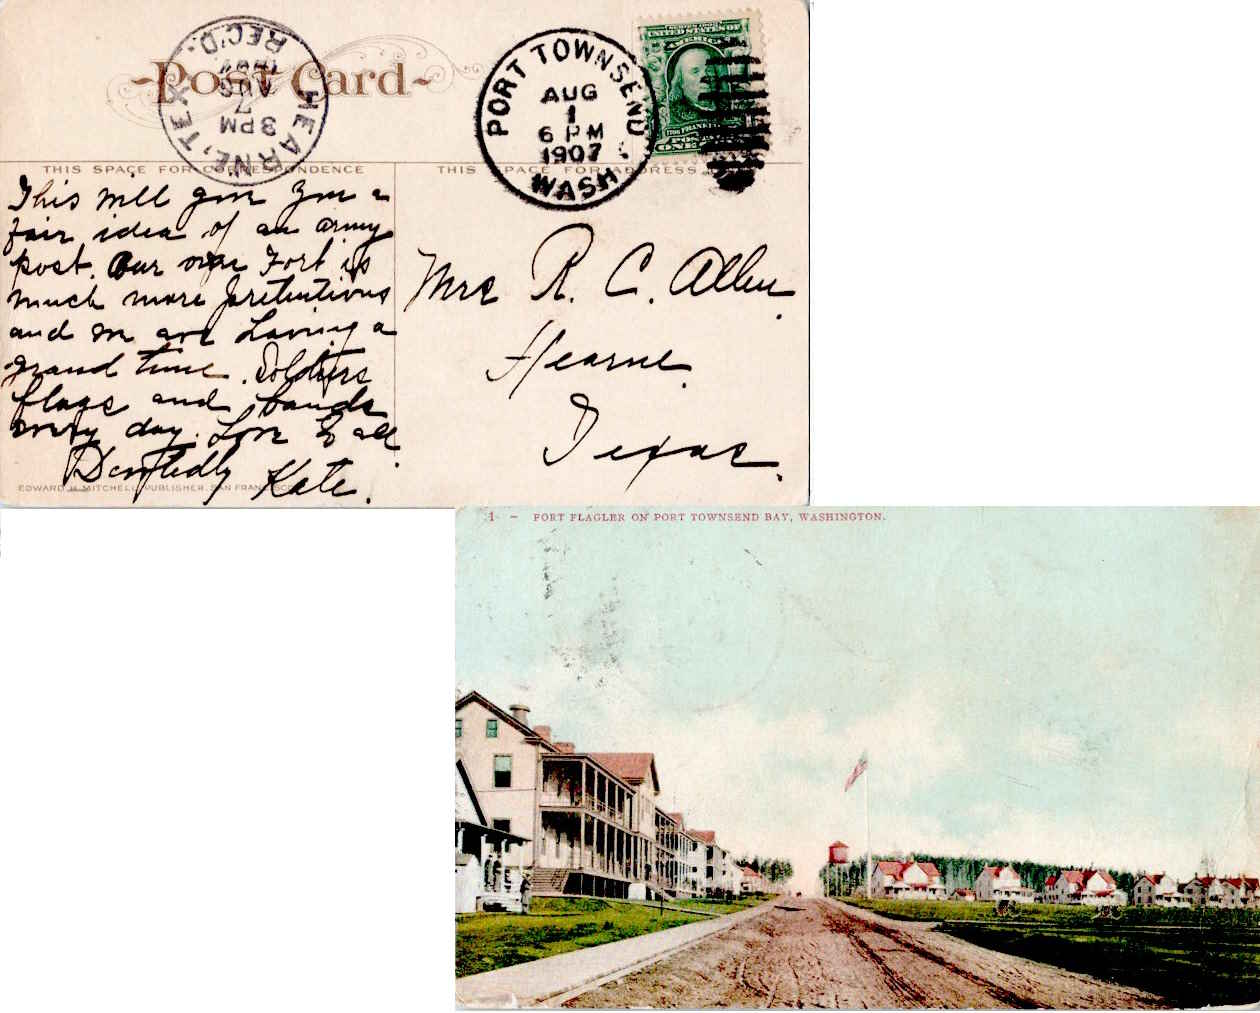 Post Card
HEARNE, TEX.
3 PM
AUG
7
1907
REC'D.
PORT TOWNSEND
AUG
1
6 PM
1907
WASH.
SERIES 1902
UNITED STATES OF
AMERICA
1706 FRANKLIN
POSTAGE
ONE
THIS SPACE FOR CORRESPONDENCE
THIS SPACE FOR ADDRESS
This will give you a
fair idea of an army
post. Our own Fort is
much more pretentious
and we are having a
grand time. Soldiers
flags and bands
every day. Love to all
Devotedly
Kate.
Mrs R. C. Allen.
Hearne.
Texas.
EDWARD H. MITCHELL, PUBLISHER, SAN FRANCISCO
1 - FORT FLAGLER ON PORT TOWNSEND BAY, WASHINGTON.